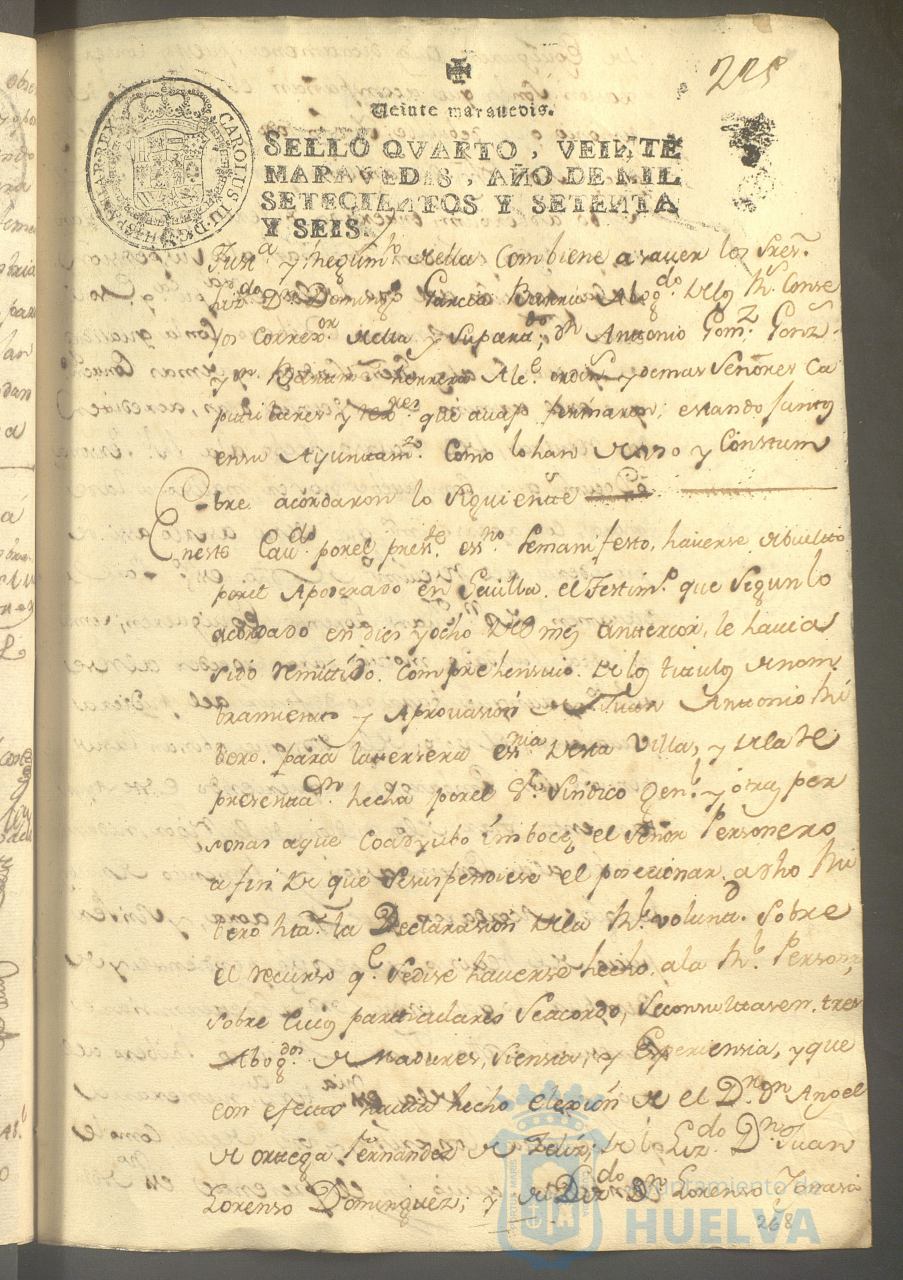 225
Veinte maravedis.
SELLO QVARTO, VEINTE
MARAVEDIS, AÑO DE MIL
SETECIENTOS Y SETENTA
Y SEIS.
CAROLUS III D G HISPANIAR REX
Just.ª y Regim.to della Combiene a saver los Sres.
Liz.do Dn. Domingo Garcia Barrio Abog.do de los Rs. Conse
jos Correx.or della y Su partido, Dn Antonio Gom.z Gonz.
y Herrera Alc.e ordin.s y demas Señores Ca
pitulares y que avajo firmaron; estando juntos
en su Ayuntam.to Como lo han de uso y Constum
bre acordaron lo Siguiente
En este Cav.do por el pres.te es.no Se manifesto, haverse debuelto
por el Apoderado en Sevilla el Testim.o que Segun lo
acordado en dies y ocho del mes anterior, le havia
sido remitido. Comprehensivo de los titulos de nom
bramiento y Aprovasion de Juan Antonio Ri
bero para la tersera es.nia desta Villa, y de la Re
presenta.on hecha por el S.or Sindico Gen.l y otras per
sonas a que Coadyubo el Señor Personero
a fin de que Sesuspendiese el posecionar a dho Ri
bero hta. la Declarasion de la R.l volunt.d Sobre
el recurso q.e Sedise haverse hecho a la R.l Person.
Sobre Cuios particulares Seacordo, Seconsultasen tres
Abog.dos de Madures, Siensia, y Esperiensia, y que
con efecto havia hecho elexión de el D.r Dn Angel
de ortega Fernandez de Felix, de lo Liz.do Dn. Juan
Lorenso Dominguez; y de Liz.do Dn Lorenso
Ayuntamiento de
HUELVA
268